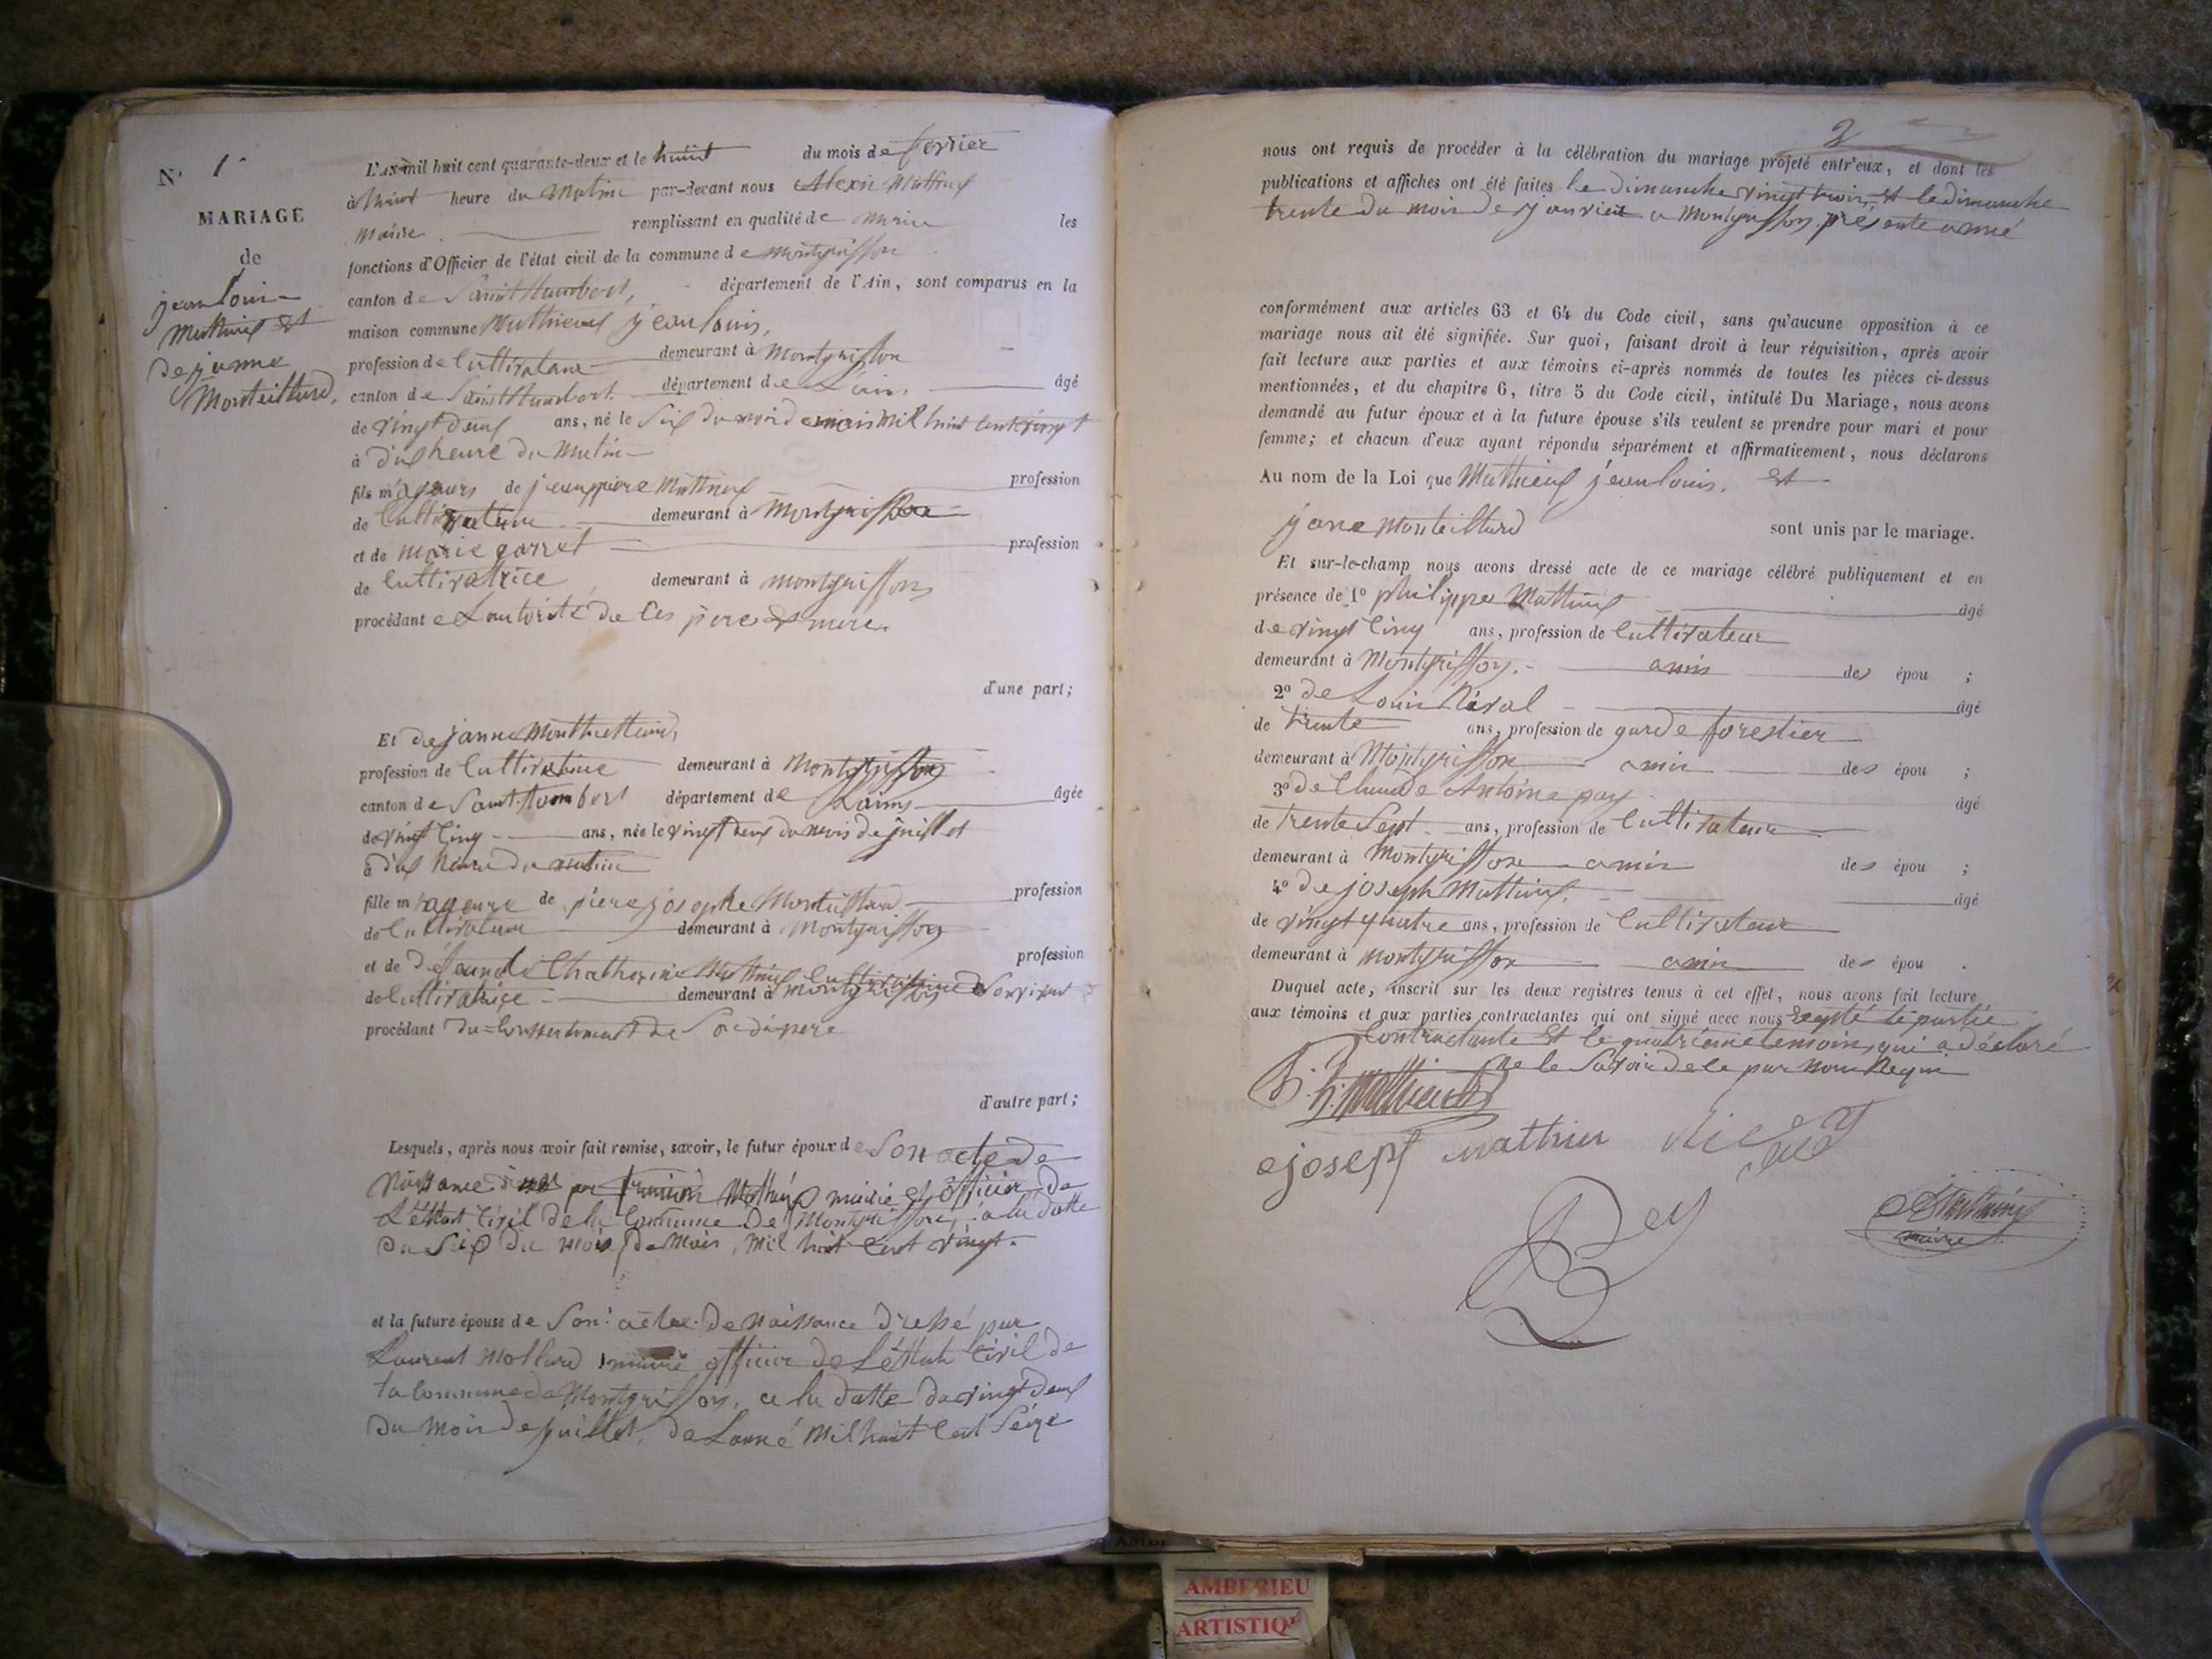 N° 1
MARIAGE
de
jean louis
Mathieux et
de janne
Monteillard.
L'AN mil huit cent quarante-deux et le huit du mois de fevrier
à huit heure du Matin par-devant nous Alexis Mathieux
Maire remplissant en qualité de Maire les
fonctions d'Officier de l'état civil de la commune de Montgriffon
canton de Saint Rambert, département de l'Ain, sont comparus en la
maison commune Mathieux jean louis,
profession de Cultivateur demeurant à Montgriffon
canton de Saint Rambert département de Lain âgé
de vingt deux ans, né le Six du mois de mars Mil huit Cent vingt
à dix heure du Matin
fils majeurs de jean pierre Mathieux profession
de Cultivateur demeurant à Montgriffon
et de Marie garret profession
de Cultivatrice demeurant à Montgriffon
procédant e Lautorité de Ces pere et mere.
d'une part;
Et de janne
profession de Cultivatrice demeurant à Montgriffon
canton de Saint Rambert département de Lains âgée
de vingt Cinq ans, née le vingt deux du mois de juillet
à dix heure du matin
fille mageure de piere josephe Monteillard profession
de Cultivateur demeurant à Montgriffon
et de Defeunde Chatherine Mathieux profession
de Cultivatrice demeurant à Montgriffon
procédant du Consentement de Son dipere
d'autre part;
Lesquels, après nous avoir fait remise, savoir, le futur époux de Son acte de
Naissance par Mathieux maire et officier de
L'éttat Civil de la Commune De Montgriffon, a la datte
du Six du mois de Mars, Mil huit Cent vingt.
et la future épouse de Son acte de Naissance Dressé par
Laurent Mollard maire officier de L'éttat Civil de
la Commune de Montgriffon, a la datte du vingt deux
du Mois de juillet, de Lanné Mil huit Cent Seize
2
nous ont requis de procéder à la célébration du mariage projeté entr'eux, et dont les
publications et affiches ont été faites le dimanche vingt trois et le dimanche
trente du mois de janvier a Montgriffon présente anné
conformément aux articles 63 et 64 du Code civil, sans qu'aucune opposition à ce
mariage nous ait été signifiée. Sur quoi, faisant droit à leur réquisition, après avoir
fait lecture aux parties et aux témoins ci-après nommés de toutes les pièces ci-dessus
mentionnées, et du chapitre 6, titre 5 du Code civil, intitulé Du Mariage, nous avons
demandé au futur époux et à la future épouse s'ils veulent se prendre pour mari et pour
femme; et chacun d'eux ayant répondu séparément et affirmativement, nous déclarons
Au nom de la Loi que Mathieux jean louis. et
jane Monteillard sont unis par le mariage.
Et sur-le-champ nous avons dressé acte de ce mariage célébré publiquement et en
présence de 1° philippe Mathieux âgé
de vingt Cinq ans, profession de Cultivateur
demeurant à Montgriffon. amis des épou ;
2° de Louis Néral âgé
de trente ans, profession de garde forestier
demeurant à Montgriffon amis des épou ;
3° de Claude Antoine pey âgé
de trente Sept ans, profession de Cultivateur
demeurant à Montgriffon amis des épou ;
4° de joseph Mathieux, âgé
de vingt quatre ans, profession de Cultivateur
demeurant à Montgriffon amis des épou .
Duquel acte, inscrit sur les deux registres tenus à cet effet, nous avons fait lecture
aux témoins et aux parties contractantes qui ont signé avec nous
Contractante Et le quatrième temoin, qui a déclaré
Ne le Savoir de ce par nous Requi
P. h. Mathieux
josepf mathieu
Pey
Mathieux
maire
AMBERIEU
ARTISTIQ